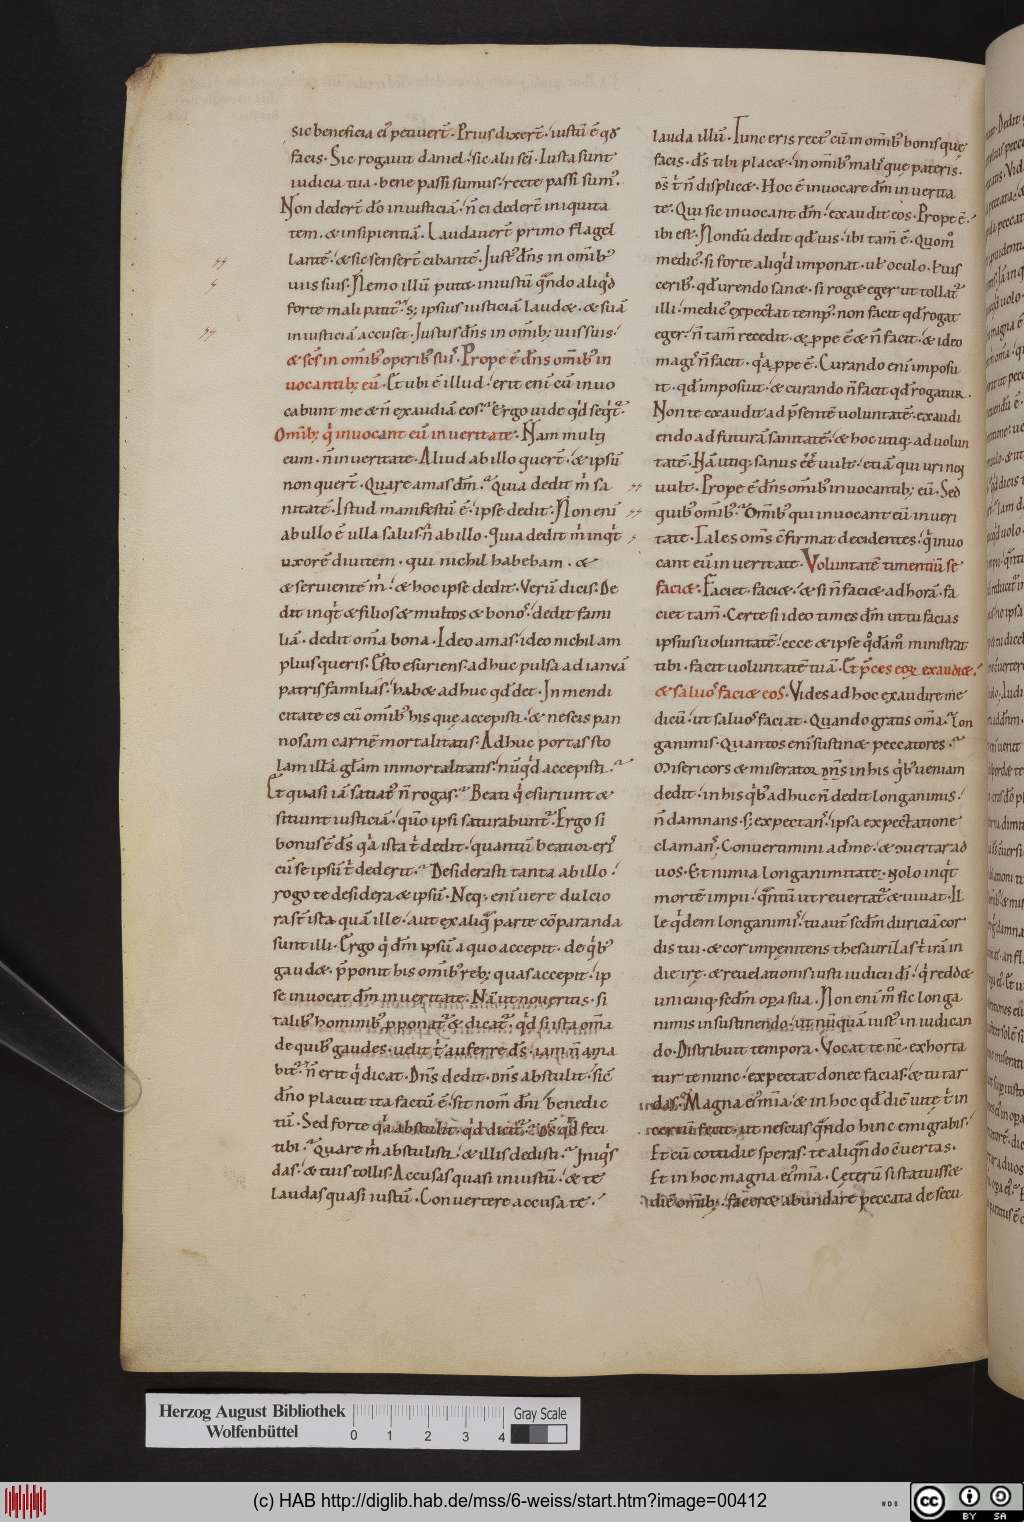 sic beneficia ei᾽ petiuer̄t · Prius dixer̄t · iustū ē qd̄
facis · Sic rogauit daniel · sic alii sc̄i · Iusta sunt
iudicia tua · bene passi sumus · recte passi sum᾽ ·
Non deder̄t dō iniusticiā · ñ ei deder̄t iniquita
tem · & insipientiā · Laudauer̄t primo flagel
lantē · & sic senser̄t cibantē · Iust᾽ dñs in omīb᾽
uiis suis · Nemo illū put& iniustū qñdo aliqͥd
forte mali patit᾽ · s; ipsius iusticiā laud& · & suā
iniusticiā accuset · Iustus dñs in omīb; uiis suis ·
& sc̄s in omīb᾽ operib᾽ suis · Prope ē dñs omīb᾽ in
uocantib; eū · Et ubi ē illud · erit enī cū inuo
cabunt me & ñ exaudiā eos · Ergo uide qͥd seqͥt᾽ ·
Omīb; qͥ inuocant eū in ueritate · Nam multi
eum · ñ in ueritate · Aliud ab illo quert̄ · & ipsū
non quert̄ · Quare amas dm̄ · Quia dedit mͥ sa
nitatē · Istud manifestū ē · ipse dedit · Non enī
ab ullo ē ulla salus · nͥ ab illo · Quia dedit mͥ inqͥt
uxorē diuitem · qui nichil habebam · &
& seruientē mͥ · & hoc ipse dedit · Verū dicis · De
dit inqͥt & filios & multos & bonos · dedit fami
liā · dedit om̄a bona · Ideo amas · ideo nichil am
plius queris · Esto esuriens · adhuc pulsa ad ianuā
patris familias · hab& adhuc qd̄ det · In mendi
citate es cū omīb᾽ his que accepisti · & nescis pan
nosam carnē mortalitatis · Adhuc portas · sto
lam illā glām inmortalitatis · nūqͥd accepisti ·
Et quasi iā satiat᾽ ñ rogas · Beati qͥ esuriunt &
sitiunt iusticiā · qūo ipsi saturabunt᾽ · Ergo si
bonus ē ds̄ qͥa ista tͥ dedit · quantū beatior eris
cū se ipsū tͥ dederit · Desiderasti tanta ab illo ·
rogo te desidera & ipsū · Neq; enī uere dulcio
ra st̄ ista quā ille · aut ex aliqͣ parte cōparanda
sunt illi · Ergo qͥ dm̄ ipsū a quo accepit · de qͥb᾽
gaud& · p̄ponit his omīb᾽ reb; quas accepit · ip
se inuocat dm̄ in ueritate · Nā ut noueritis · si
talib᾽ hominib᾽ pponat᾽ & dicat᾽ · qͥd si ista om̄a
de quib᾽ gaudes · uelit tͥ auferre ds̄ · iam ñ ama
bit᾽ · ñ erit qͥ dicat · Dñs dedit · dñs abstulit · sic᾽
dño placuit ita factū ē · sit nom̄ dñi benedic
tū · Sed forte qͥ abstulit · qͥd dicit᾽ · Ds̄ qͥd feci
tibi · Quare mͥ abstulisti · & illis dedisti · Iniqͥs
das · & tuis tollis · Accusas quasi iniustū · & te
laudas quasi iustū · Conuertere · accusa te ·
lauda illū · Tunc eris rect᾽ cū in omīb᾽ bonis que
facis · ds̄ tibi plac& · in omīb᾽ malis que pateris ·
ds̄ tͥ ñ displic& · Hoc ē inuocare dm̄ in uerita
te · Qui sic inuocant dm̄ · exaudit eos · Prope ē ·
ibi est · Nondū dedit qd̄ uis · ibi tam̄ ē · Quom̊
medic᾽ · si forte aliqͥd imponat · ul̄ oculo · ł uis
cerib᾽ · qd̄ urendo san& · si rog& eger ut tollat᾽
illi · medic᾽ expectat temp᾽ · non facit qd̄ rogat
eger · ñ tam̄ recedit · & ppe ē & ñ facit · & ideo
magis ñ facit · qͥa ppe ē · Curando enī imposu
it · qd̄ imposuit · & curando ñ facit qd̄ rogatur ·
Non te exaudit ad p̄sentē uoluntatē · exaudi
endo ad futurā sanitatē · & hoc utiq; ad uolun
tatē · Nā utiq; sanus eē uult · etiā qui uri non
uult · Prope ē dñs omīb᾽ inuocantib; eū · Sed
quib᾽ omīb᾽ · Omīb᾽ qui inuocant eū in ueri
tate · Tales oms̄ c̄firmat decidentes · qͥ inuo
cant eū in ueritate · Voluntatē timentiū se
faci& · Faciet · faci& · & si ñ faci& ad horā · fa
ciet tam̄ · Certe si ideo times dm̄ ut tu facias
ipsius uoluntatē · ecce & ipse qͦdam̊ ministrat
tibi · facit uoluntatē tuā · Et p̄ces eoꝝ exaudi& ·
& saluos faci& eos · Vides ad hoc exaudire me
dicū · ut saluos faciat · Quando gratis om̄a · Lon
ganimis · Quantos enī sustin& peccatores ·
Misericors & miserator dñs in his qͥb᾽ ueniam
dedit · in his qͥb᾽ adhuc ñ dedit longanimis ·
ñ damnans · s; expectans · ipsa expectatione
clamans · Conuertimini ad me · & ↄuertar ad
uos · Et nimia longanimitate · Nolo inqͥt
mortē impii · qͣntū ut reuertat᾽ & uiuat · Il
le qͥdem longanimis · tu aut̄ scdm̄ duriciā cor
dis tui · & cor impenitens thesaurilas tͥ irā in
die ire · & reuelationis iusti iudicii dī · qͥ redd&
unicuiq; scdm̄ opa sua · Non enī m̊ sic longa
nimis in sustinendo · ut nūquā iust᾽ in iudican
do · Distribuit tempora · Vocat te nc̄ · exhorta
tur te nunc · expectat donec facias · & tu tar
das · Magna ei᾽ mīa · & in hoc qd̄ diē uite tͥ in
certū fecit · ut nescias qñdo hinc emigrabis ·
Et cū cottidie speras · te aliqñdo c̄uertas ·
Et in hoc magna ei᾽ mīa · Ceterū si statuiss&
diē omīb; · facer& abundare peccata de secu
Herzog August Bibliothek
Wolfenbüttel
0 1 2 3 4
Gray Scale
(c) HAB http://diglib.hab.de/mss/6-weiss/start.htm?image=00412
WDB
cc BY SA